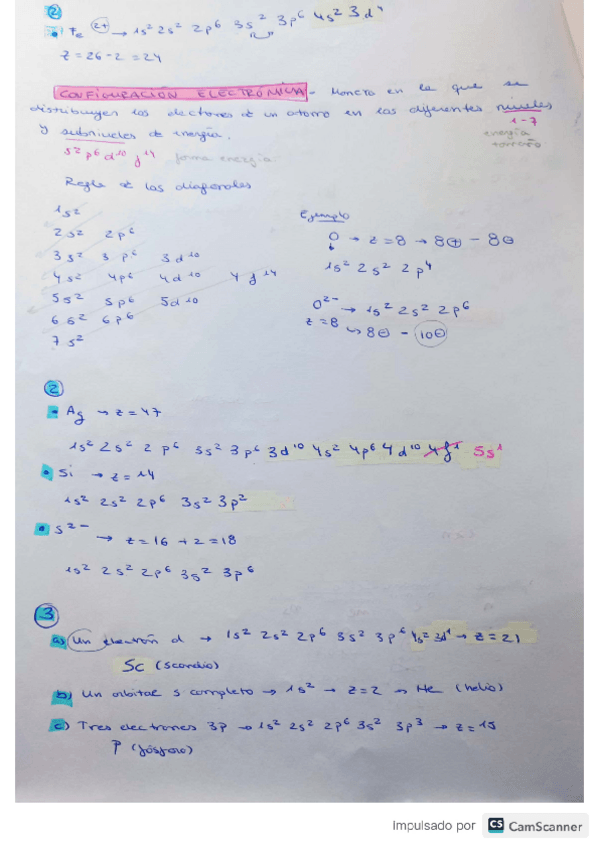 ②
Fe 2+ → 1s² 2s² 2p⁶ 3s² 3p⁶ 4s² 3d⁴
z = 26 - 2 = 24
CONFIGURACIÓN ELECTRÓNICA - Manera en la que se
distribuyen los electrones de un átomo en los diferentes niveles
1-7
y subniveles de energía.
energía
tamaño
s² p⁶ d¹⁰ f¹⁴ forma energía
Regla de las diagonales
1s²
Ejemplo
2s² 2p⁶
O → z = 8 → 8⊕ - 8⊖
3s² 3p⁶ 3d¹⁰
1s² 2s² 2p⁴
4s² 4p⁶ 4d¹⁰ 4f¹⁴
5s² 5p⁶ 5d¹⁰
O²⁻ → 1s² 2s² 2p⁶
6s² 6p⁶
z = 8 ↳ 8⊖ - 10⊖
7s²
②
Ag → z = 47
1s² 2s² 2p⁶ 3s² 3p⁶ 3d¹⁰ 4s² 4p⁶ 4d¹⁰ 4f¹ 5s¹
Si → z = 14
1s² 2s² 2p⁶ 3s² 3p²
S²⁻ → z = 16 + 2 = 18
1s² 2s² 2p⁶ 3s² 3p⁶
③
a) Un electrón d → 1s² 2s² 2p⁶ 3s² 3p⁶ 4s² 3d¹ → z = 21
Sc (scandio)
b) Un orbital s completo → 1s² → z = 2 → He (helio)
c) Tres electrones 3p → 1s² 2s² 2p⁶ 3s² 3p³ → z = 15
P (fósforo)
Impulsado por CS CamScanner